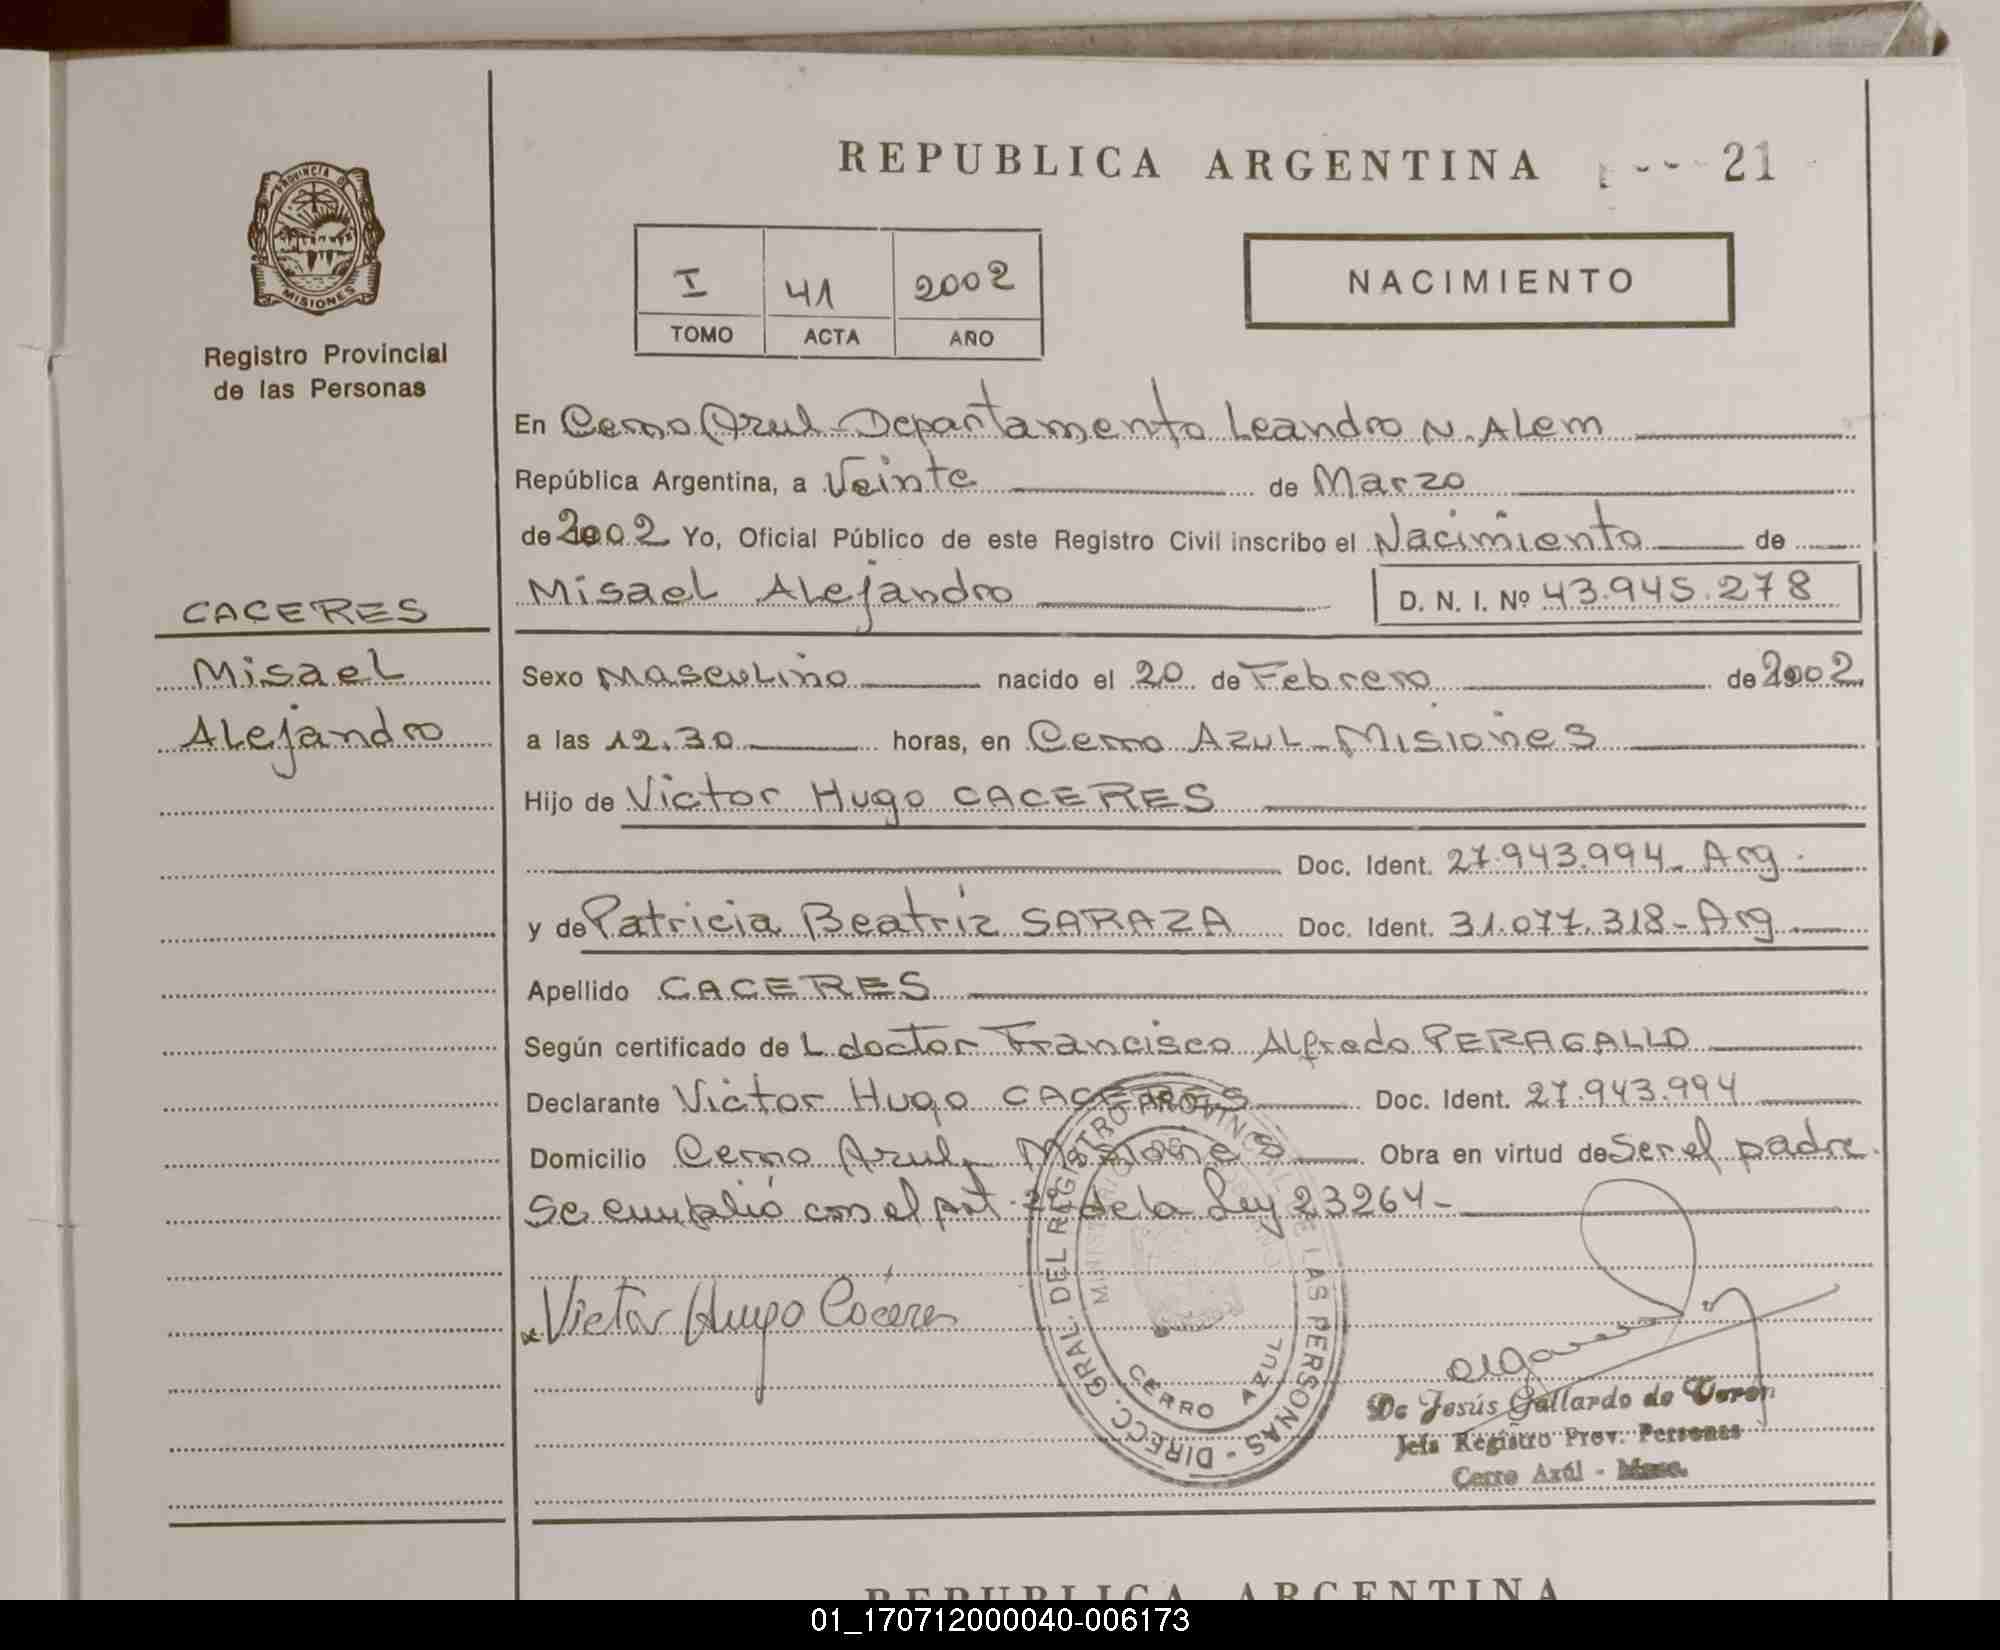 REPUBLICA ARGENTINA
21
PROVINCIA D
MISIONES
Registro Provincial
de las Personas
I 41 2002
TOMO ACTA AÑO
NACIMIENTO
En Cerro Azul - Departamento Leandro N. Alem
República Argentina, a Veinte de Marzo
de 2002 Yo, Oficial Público de este Registro Civil inscribo el Nacimiento de
Misael Alejandro D. N. I. Nº 43.945.278
CACERES
Misael
Alejandro
Sexo Masculino nacido el 20 de Febrero de 2002
a las 12.30 horas, en Cerro Azul - Misiones
Hijo de Victor Hugo CACERES
Doc. Ident. 27.943.994 - Arg.
y de Patricia Beatriz SARAZA Doc. Ident. 31.077.318 - Arg
Apellido CACERES
Según certificado de L doctor Francisco Alfredo PERAGALLO
Declarante Victor Hugo CACERES Doc. Ident. 27.943.994
Domicilio Cerro Azul, Misiones Obra en virtud de Ser el padre.
Se cumplió con el Art. 2º de la Ley 23264 -
Victor Hugo Cáceres
DIRECC. GRAL. DEL REGISTRO PROVINCIAL DE LAS PERSONAS -
CERRO AZUL
De Jesús Gallardo de Veron
Jefa Registro Prov. Personas
Cerro Azul - Mnes.
REPUBLICA ARGENTINA
01_170712000040-006173